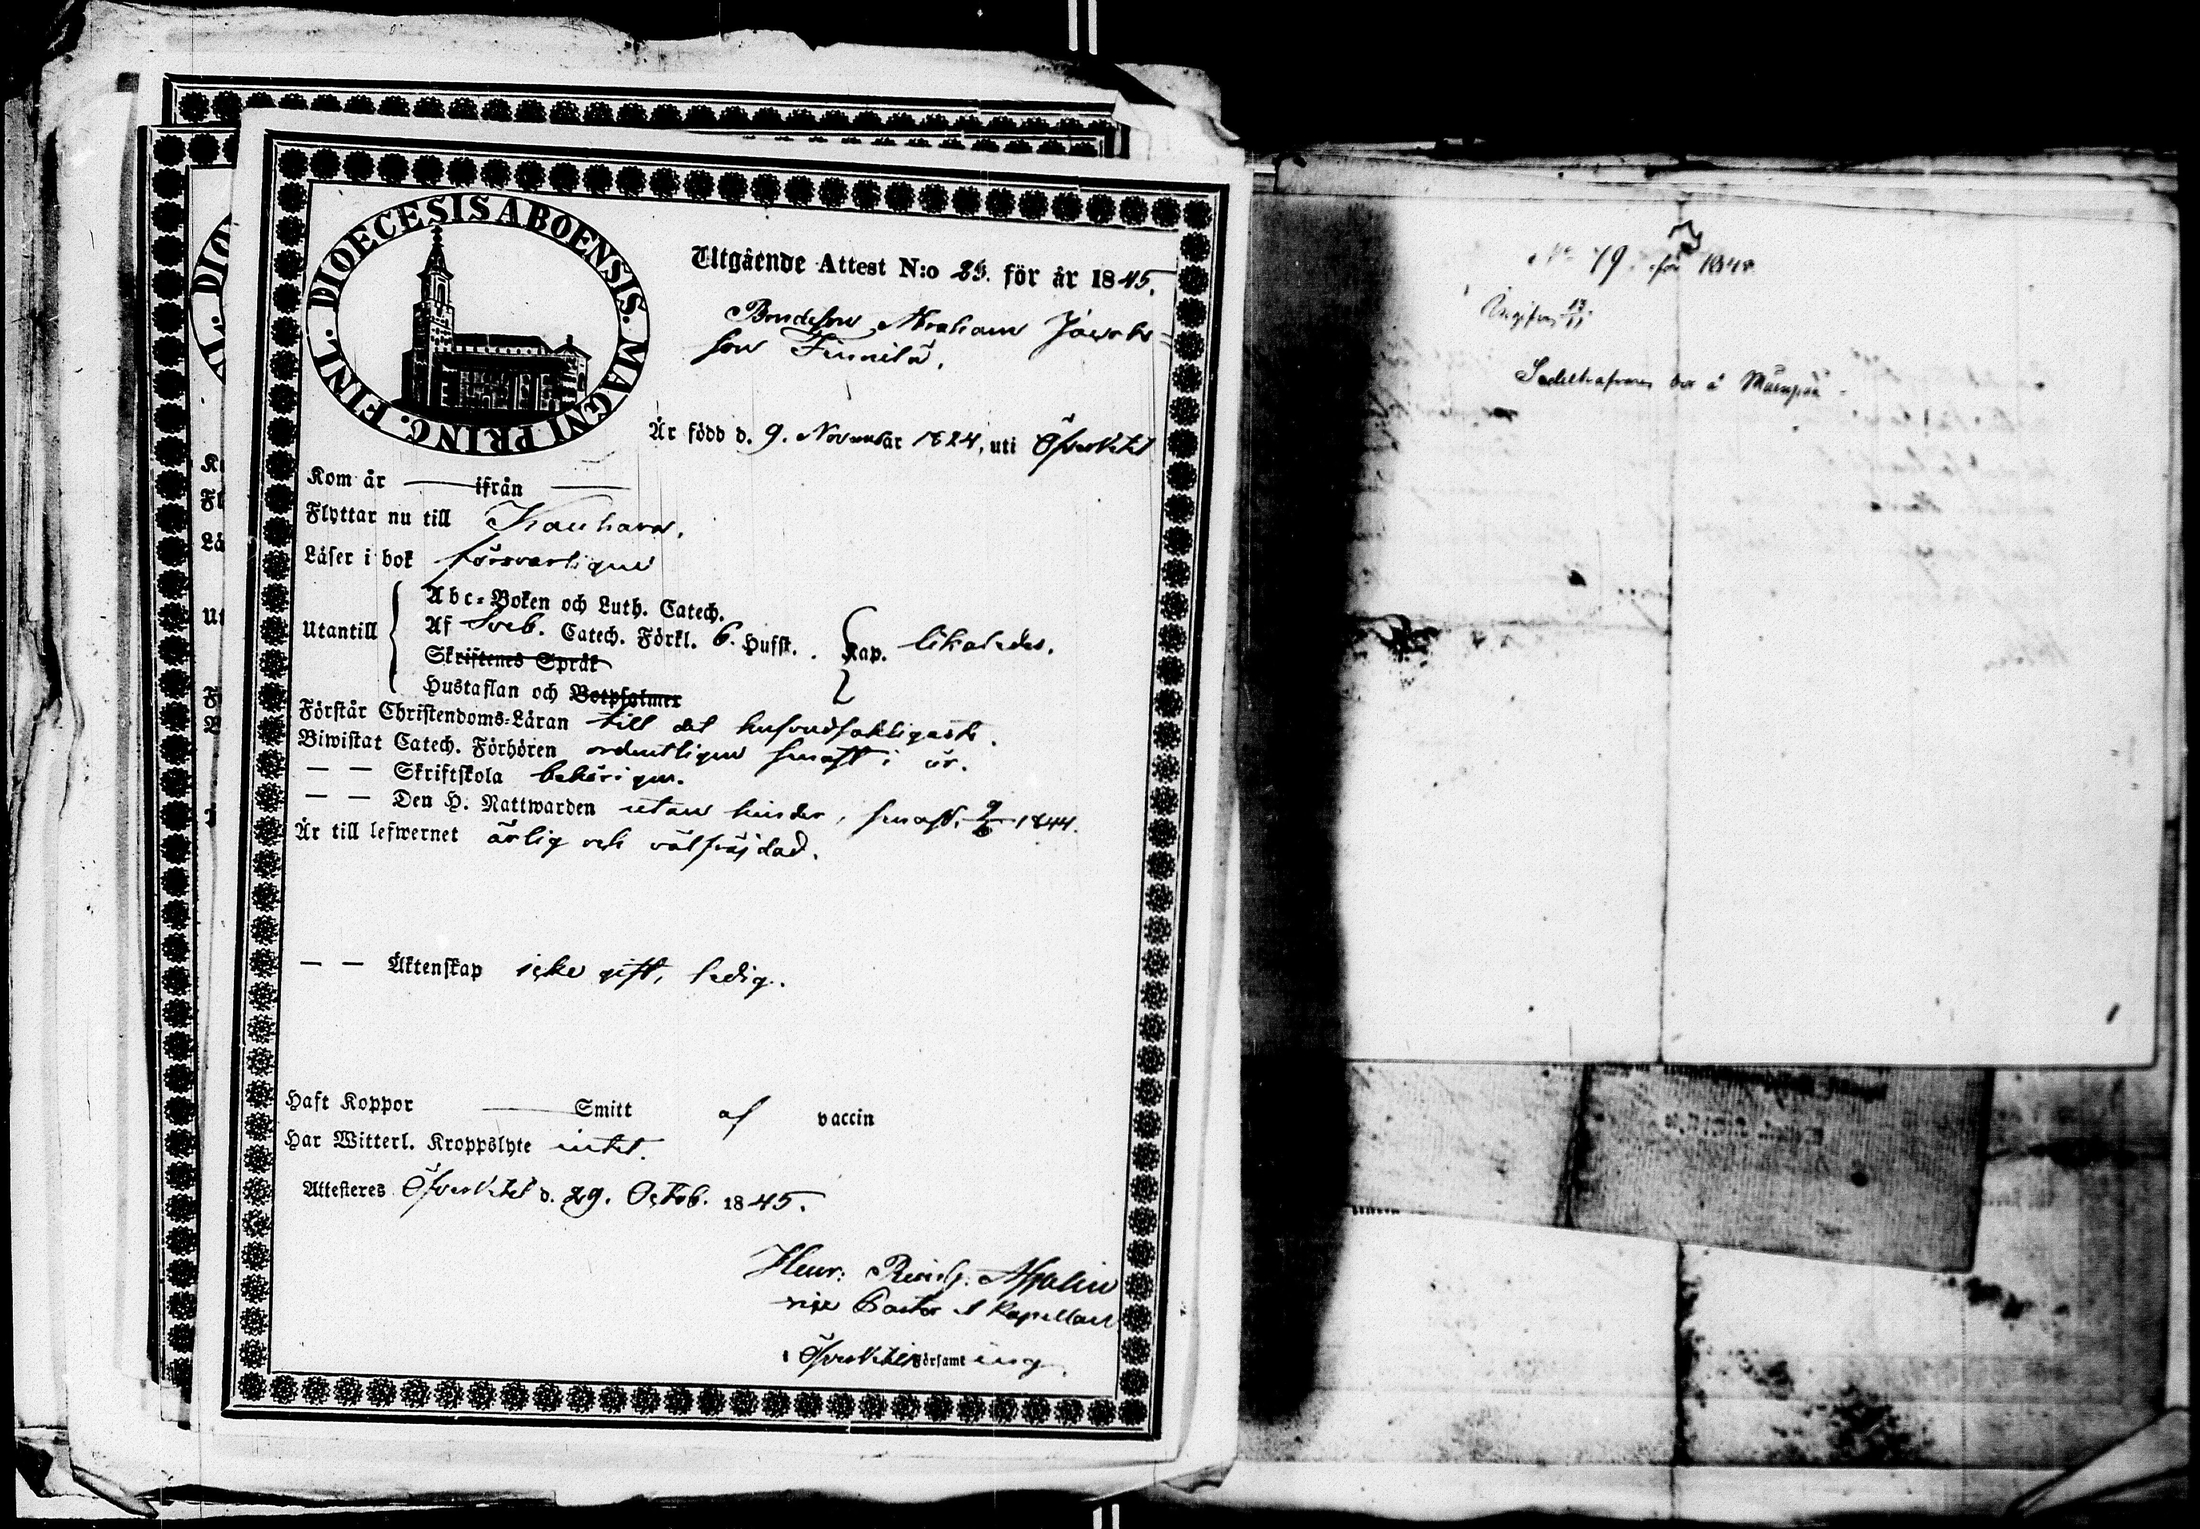 DIOECESIS ABOENSIS. MAGNI PRINC. FINL.
Utgående Attest N:o 25. för år 1845.
Bondeson Abraham Jacobs-
son Finnilä.
Är född d. 9. Novembr 1824, uti Öfverkihl
Kom år — ifrån —
Flyttar nu till Kauhava.
Läser i bok försvarligen
Utantill
Abc-Boken och Luth. Catech.
Af Sveb. Catech. Förkl. 6. Hufst. . Kap. likaledes.
Skriftenes Språk
Hustaflan och Botpsalmer
Förstår Christendoms-Läran till det hufvudsakligaste.
Biwistat Catech. Förhören ordentligen senast i år.
— — Skriftskola behörigen.
— — Den H. Nattwarden utan hinder, senast 9/6 1844.
Är till lefwernet ärlig och välfräjdad.
— — Äktenskap icke gift, ledig.
Haft Koppor — Smitt af vaccin
Har Witterl. Kroppslyte intet.
Attesteres Öfverkihl d. 29. Octob. 1845.
Henr: Reinh.
vice Pastor & Kapellan
i Församling.
No 79. för
Uppå